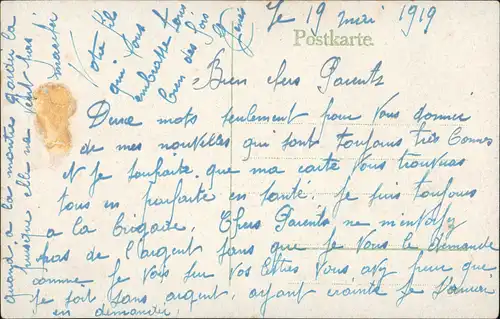 Le 19 mai 1919
Postkarte
Bien chers Parents
Deux mots seulement pour vous donner
de mes nouvelles qui sont toujours très bonnes
et je souhaite que ma carte vous trouveras
tous en parfaite en santé. Je suis toujours
a la brigade. Chers Parents ne m'envoyez
pas de l'argent sans que je vous le demande
comme je vois sur vos lettres vous avez peur que
je soit sans argent, ayant crainte je
en demander.
quand a la montre garder la
puisque elle ne veut pas
marcher
Votre fils
qui vous
embrasse tous
bien des fois